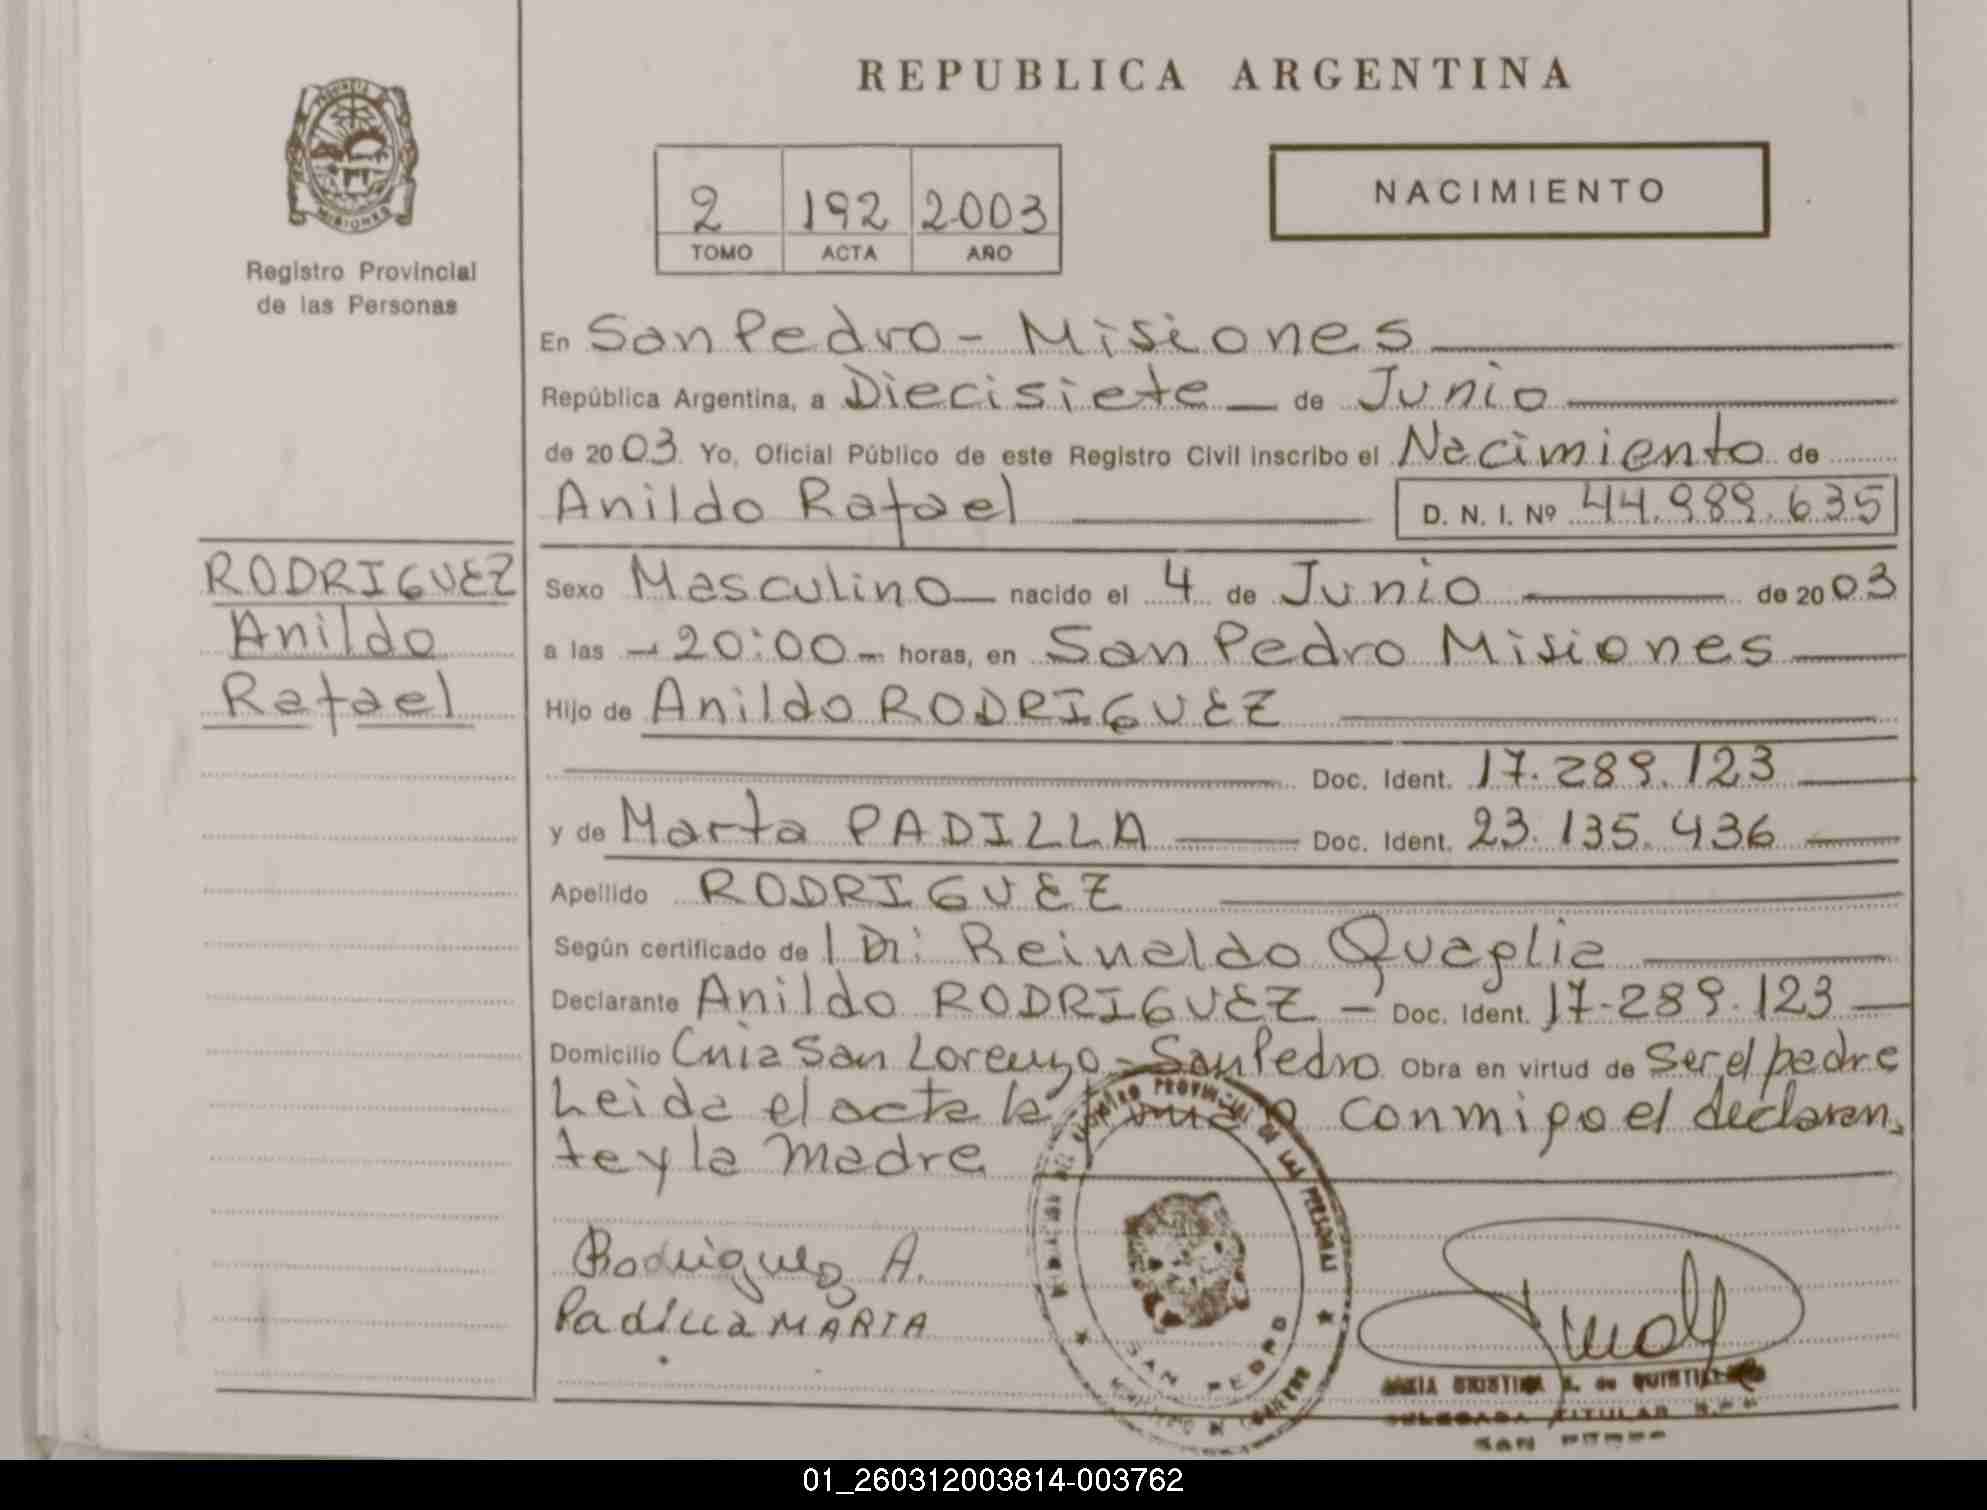 REPUBLICA ARGENTINA
PROVINCIA DE
MISIONES
Registro Provincial
de las Personas
2 192 2003
TOMO ACTA AÑO
NACIMIENTO
En San Pedro - Misiones
República Argentina, a Diecisiete de Junio
de 2003 Yo, Oficial Público de este Registro Civil inscribo el Nacimiento de
Anildo Rafael D. N. I. Nº 44.989.635
RODRIGUEZ
Anildo
Rafael
Sexo Masculino nacido el 4 de Junio de 2003
a las - 20:00 - horas, en San Pedro Misiones
Hijo de Anildo RODRIGUEZ
Doc. Ident. 17.289.123
y de Marta PADILLA Doc. Ident. 23.135.436
Apellido RODRIGUEZ
Según certificado de Dr: Reinaldo Quaglia
Declarante Anildo RODRIGUEZ - Doc. Ident. 17-289.123
Domicilio Cnia San Lorenzo - San Pedro Obra en virtud de Ser el padre
Leida el acta la conmigo el declaran
te y la madre
Rodriguez A.
Padilla MARTA
REGISTRO PROVINCIAL DE LAS PERSONAS
SAN PEDRO
MINISTERIO DE GOBIERNO
DELEGADA TITULAR
SAN PEDRO
01_260312003814-003762